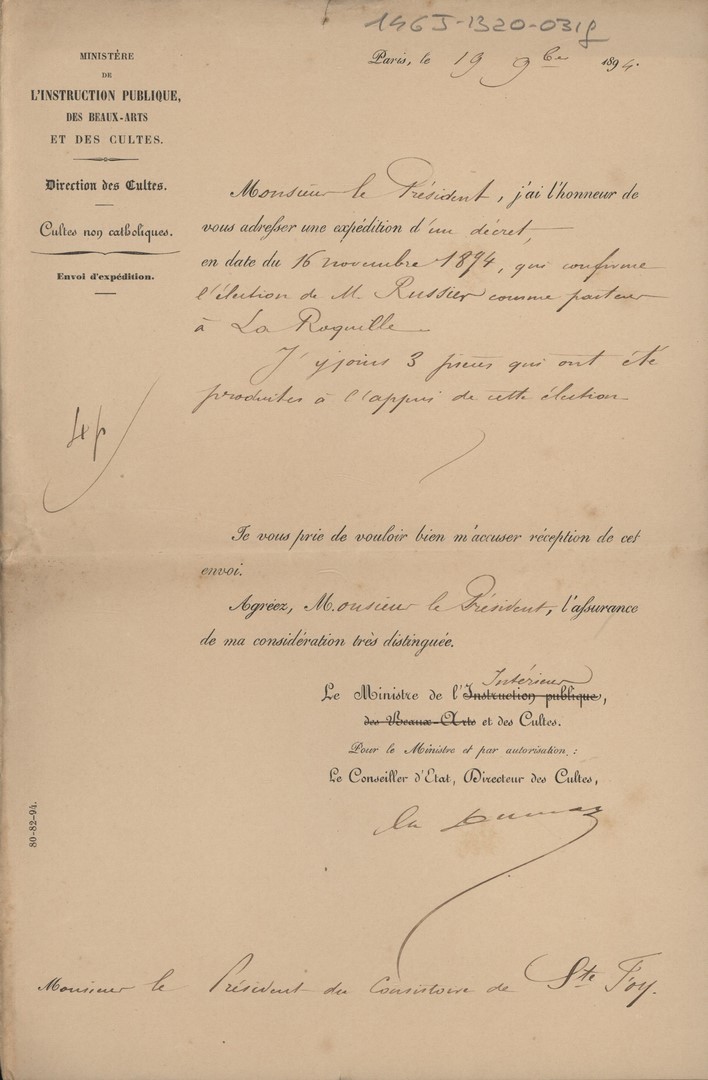 146J-1320-031
Paris, le 19 9bre 1894.
MINISTÈRE
DE
L'INSTRUCTION PUBLIQUE,
DES BEAUX-ARTS
ET DES CULTES.
Direction des Cultes.
Cultes non catholiques.
Envoi d'expédition.
Monsieur le Président, j'ai l'honneur de
vous adresser une expédition d'un décret,
en date du 16 novembre 1894, qui confirme
l'élection de M. Russier comme pasteur
à La Roquille
J'y joins 3 pièces qui ont été
produites à l'appui de cette élection
4
Je vous prie de vouloir bien m'accuser réception de cet
envoi.
Agréez, Monsieur le Président, l'assurance
de ma considération très distinguée.
Intérieur
Le Ministre de l'Instruction publique,
des Beaux-Arts et des Cultes.
Pour le Ministre et par autorisation :
Le Conseiller d'Etat, Directeur des Cultes,
Dumay
80-82-94.
Monsieur le Président du Consistoire de Ste Foy.